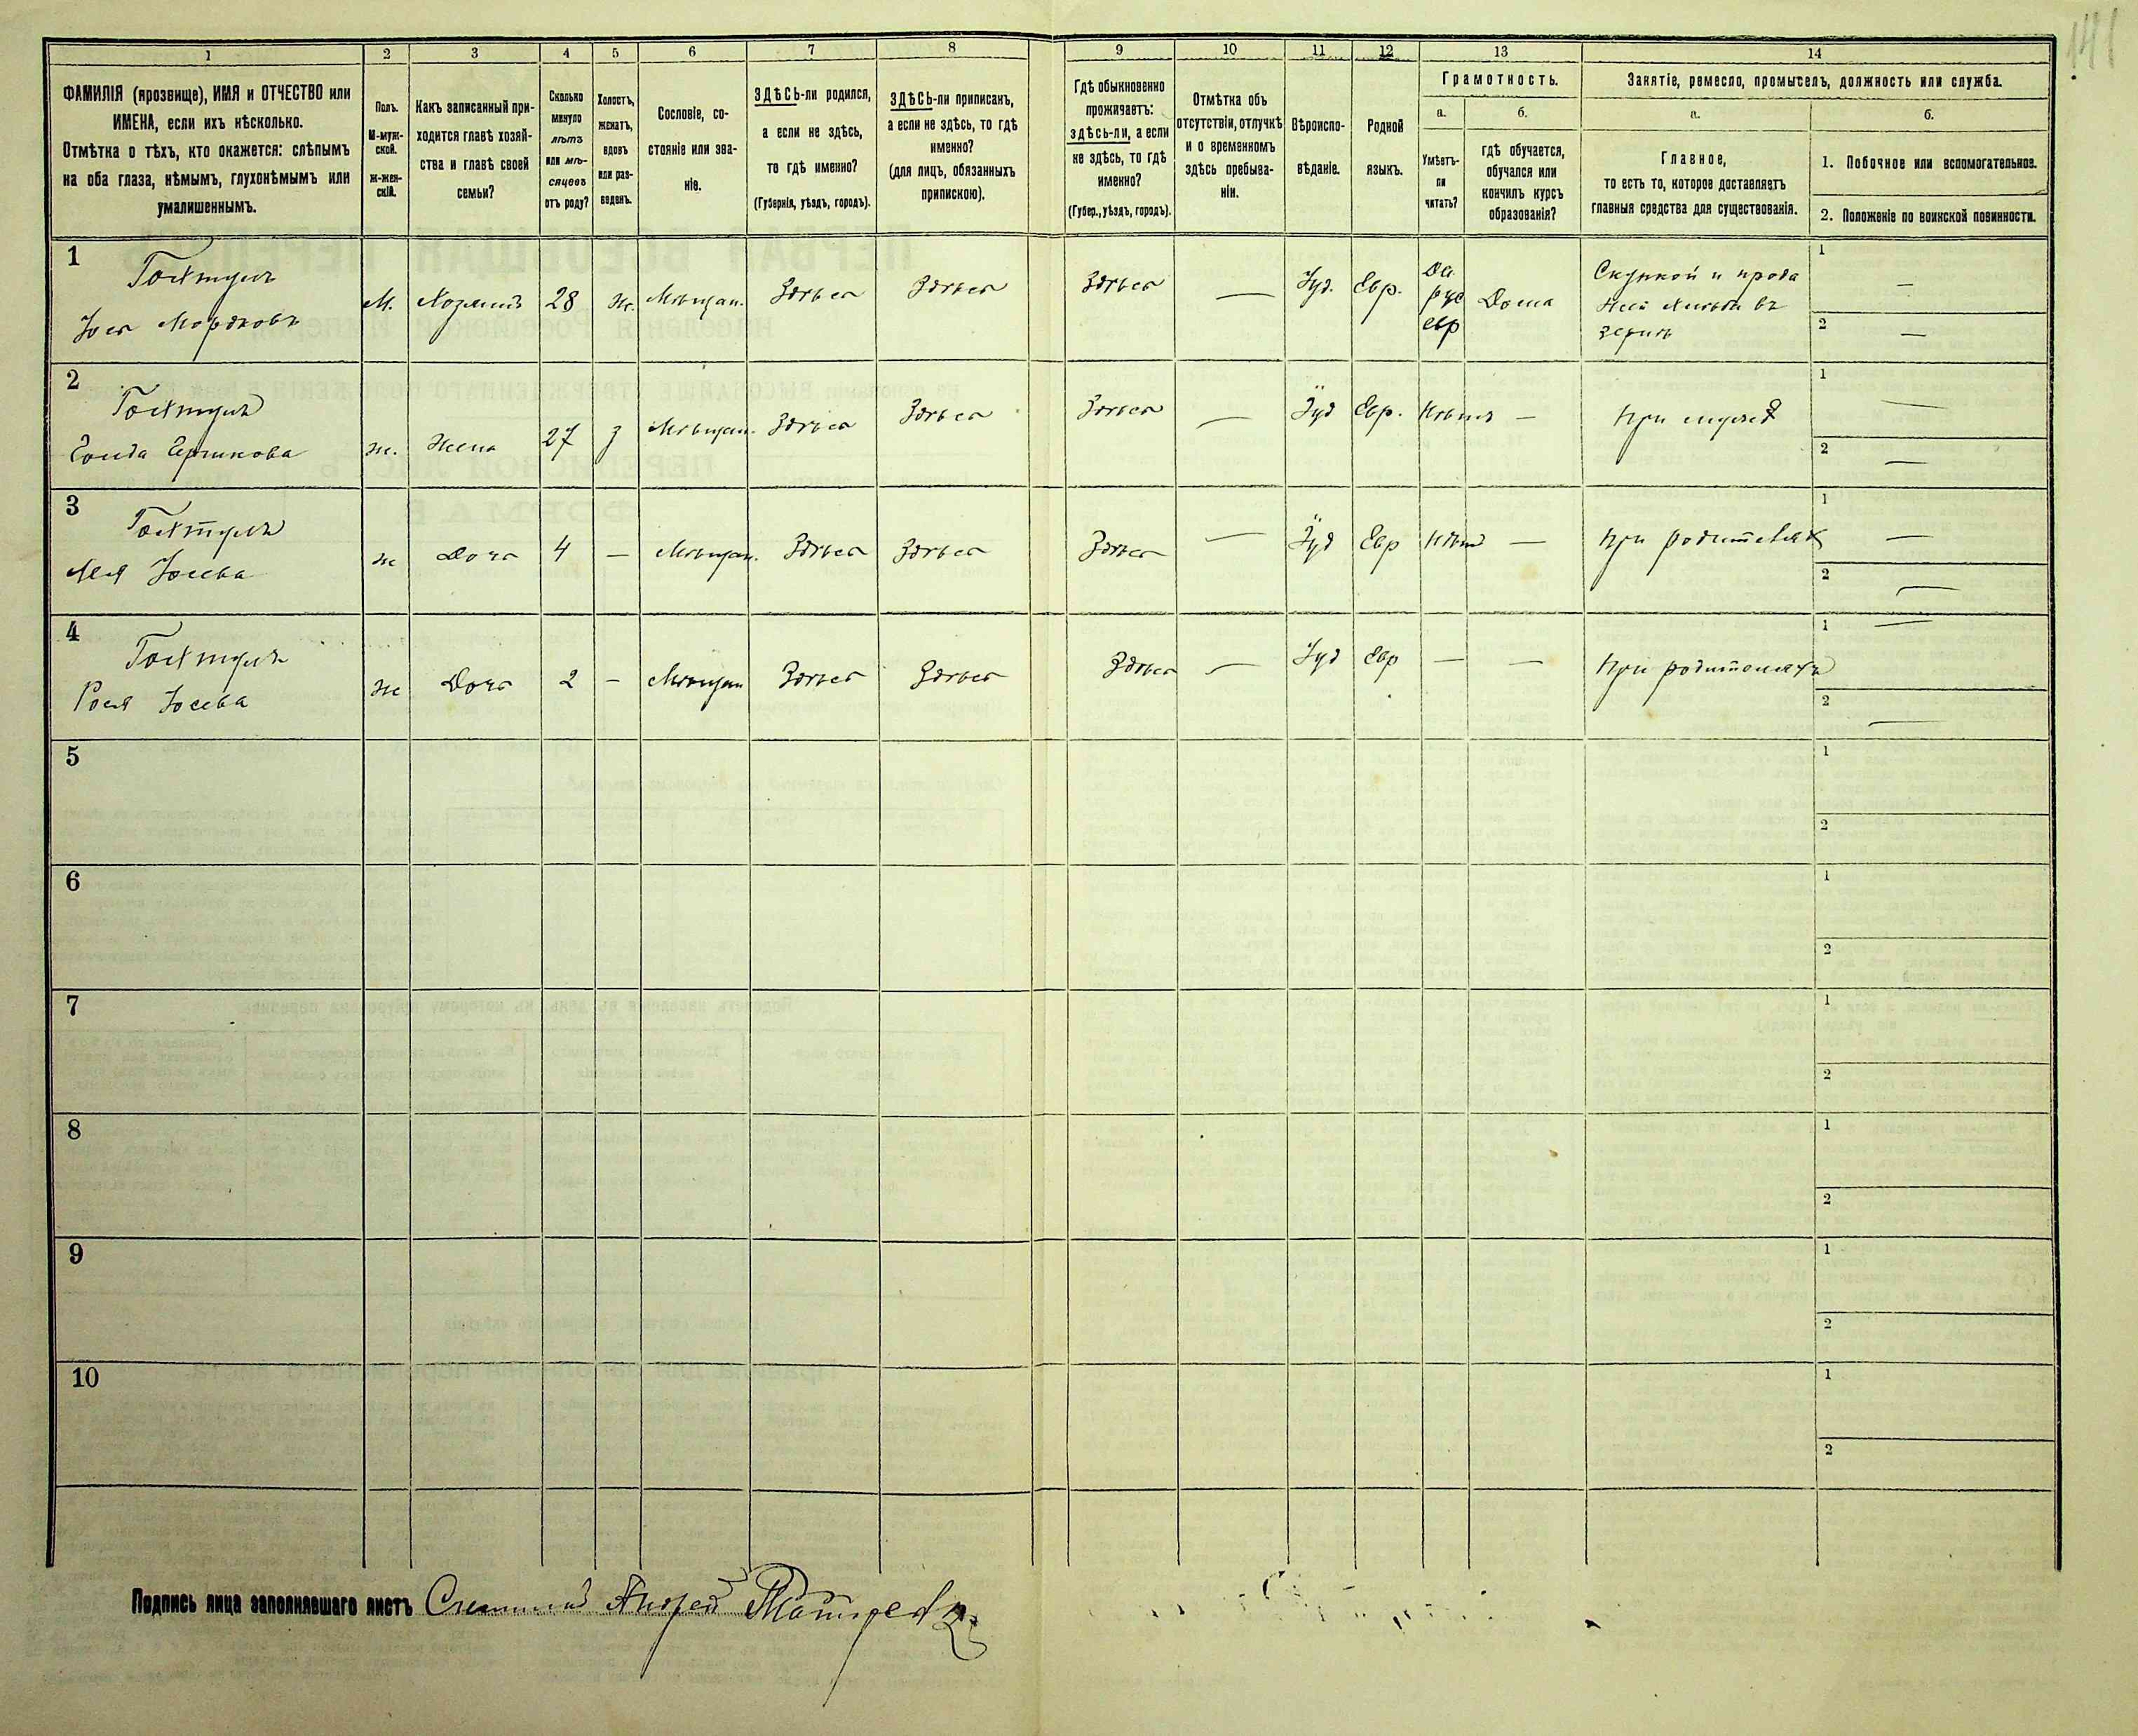 141
1
2
3
4
5
6
7
8
9
10
11
12
13
14
ФАМИЛІЯ (прозвище), ИМЯ и ОТЧЕСТВО или
ИМЕНА, если ихъ нѣсколько.
Отмѣтка о тѣхъ, кто окажется: слѣпымъ
на оба глаза, нѣмымъ, глухонѣмымъ или
умалишеннымъ.
Полъ.
М-муж-
ской.
Ж-жен-
скій.
Какъ записанный при-
ходится главѣ хозяй-
ства и главѣ своей
семьи?
Сколько
минуло
лѣтъ
или мѣ-
сяцевъ
отъ роду?
Холостъ,
женатъ,
вдовъ
или раз-
веденъ.
Сословіе, со-
стояніе или зва-
ніе.
ЗДѢСЬ-ли родился,
а если не здѣсь,
то гдѣ именно?
(Губернія, уѣздъ, городъ).
ЗДѢСЬ-ли приписанъ,
а если не здѣсь, то гдѣ
именно?
(для лицъ, обязанныхъ
припискою).
Гдѣ обыкновенно
проживаетъ:
здѣсь-ли, а если
не здѣсь, то гдѣ
именно?
(Губер., уѣздъ, городъ).
Отмѣтка объ
отсутствіи, отлучкѣ
и о временномъ
здѣсь пребыва-
ніи.
Вѣроиспо-
вѣданіе.
Родной
языкъ.
Грамотность.
а.
Умѣетъ-
ли
читать?
б.
гдѣ обучается,
обучался или
кончилъ курсъ
образованія?
Занятіе, ремесло, промыселъ, должность или служба.
а.
Главное,
то есть то, которое доставляетъ
главныя средства для существованія.
б.
1. Побочное или вспомогательное.
2. Положеніе по воинской повинности.
1
Гохтулъ
Іось Мордковъ
М.
Хозяинъ
28
ж.
Мѣщан.
Здѣсь
Здѣсь
Здѣсь
—
Іуд.
Евр.
Да
рус
евр
Дома
Скупкой и прода
жей хлѣба въ
зернѣ
1
—
2
—
2
Гохтулъ
ж.
Жена
27
З
Мѣщан.
Здѣсь
Здѣсь
Здѣсь
—
Іуд
Евр.
Нѣтъ
—
При мужѣ
1
—
2
—
3
Гохтулъ
Лея Іосева
ж
Дочь
4
—
Мѣщан.
Здѣсь
Здѣсь
Здѣсь
—
Іуд
Евр
Нѣтъ
—
При родителях
1
—
2
—
4
Гохтулъ
Рося Іосева
ж
Дочь
2
—
Мѣщан
Здѣсь
Здѣсь
Здѣсь
—
Іуд
Евр
—
—
При родителяхъ
1
—
2
—
5
1
2
6
1
2
7
1
2
8
1
2
9
1
2
10
1
2
Подпись лица заполнявшаго листъ Андрей